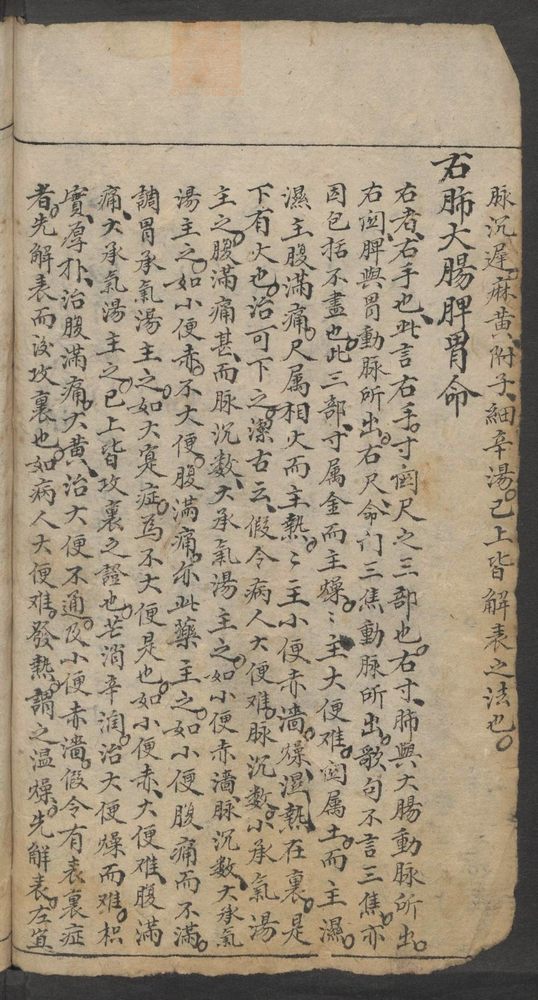 脉沉遲。麻黄附子細辛湯。已上皆解表之法也。
右肺大腸脾胃命
右者、右手也、此言右手。寸関尺之三部也。右寸、肺與大腸動脉所出。
右関脾與胃動脉所出。右尺、命门三焦動脉所出。歌句不言三焦。亦
因包括不盡也。此三部、寸属金而主燥。〻主大便难。関属土而主濕。
濕主腹滿痛。尺属相火而主熱。〻主小便赤濇。燥濕熱在裏。是
下有火也。治可下之。潔古云、假令病人大便难。脉沉数。小承氣湯
主之。腹滿痛甚、而脉沉数、大承氣湯主之。如小便赤濇脉沉数、大承氣
湯主之。如小便赤。不大便。腹滿痛。亦此藥主之。如小便腹痛而不滿。
調胃承氣湯主之。如大寔症。為不大便是也。如小便赤、大便难、腹滿
痛、大承氣湯主之。已上皆攻裏之證也。芒消辛润。治大便燥而难。枳
實、厚朴、治腹滿痛。大黄、治大便不通。及小便赤濇。假令有表裏症
者。先解表而後攻裏也。如病人大便难。發熱。謂之温燥。先解表。左宜